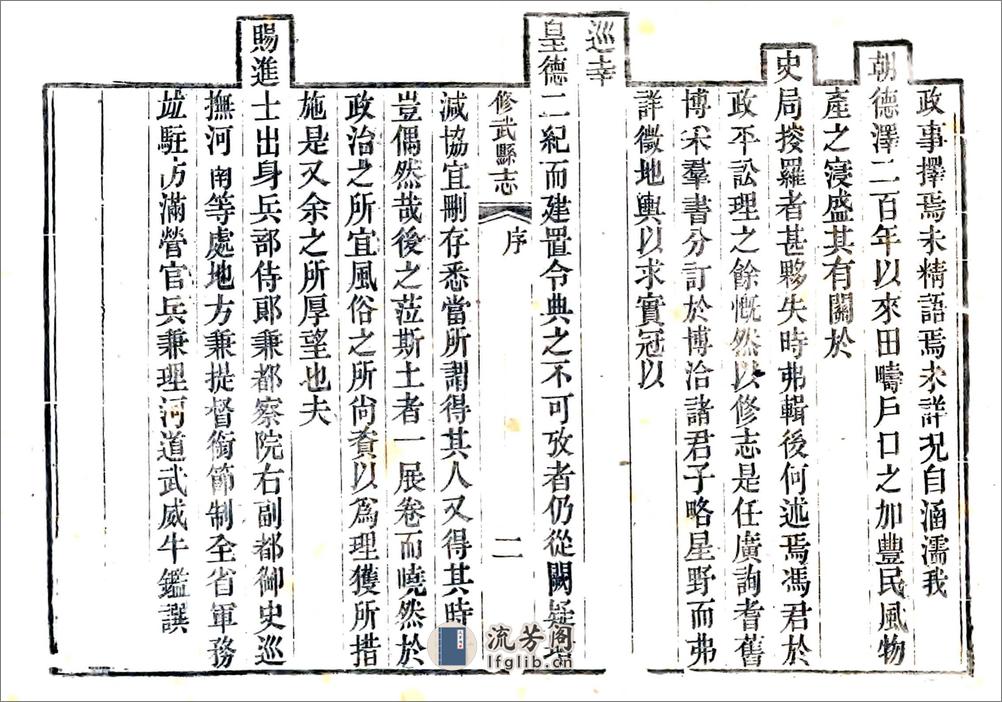 政事擇焉未精語焉未詳况自涵濡我
朝德澤二百年以來田疇戶口之加豐民風物
產之寖盛其有關於
史局搜羅者甚夥失時弗輯後何述焉馮君於
政平訟理之餘慨然以修志是任廣詢耆舊
博采羣書分訂於博洽諸君子略星野而弗
詳徵地輿以求實冠以
巡幸
皇德二紀而建置令典之不可攷者仍從闕疑
修武縣志 序 二
減協宜刪存悉當所謂得其人又得其時
豈偶然哉後之蒞斯土者一展卷而曉然於
政治之所宜風俗之所尙賫以爲理獲所措
施是又余之所厚望也夫
賜進士出身兵部侍郞兼都察院右副都御史巡
撫河南等處地方兼提督銜節制全省軍務
竝駐防滿營官兵兼理河道武威牛鑑譔
流芳阁
lfglib.cn